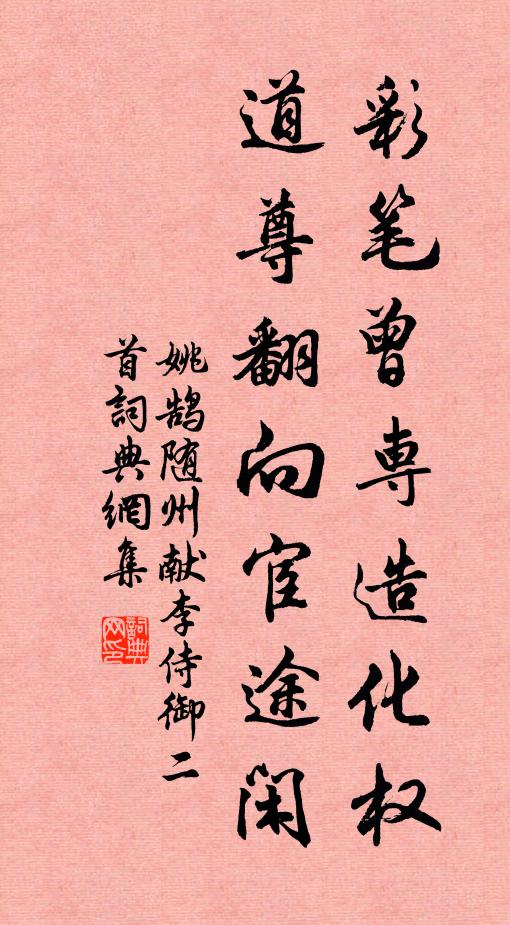 彩笔曾専造化权
道尊翻向宦途闲
姚鹄随州献李侍御二
首詞典網集
詞典
网印